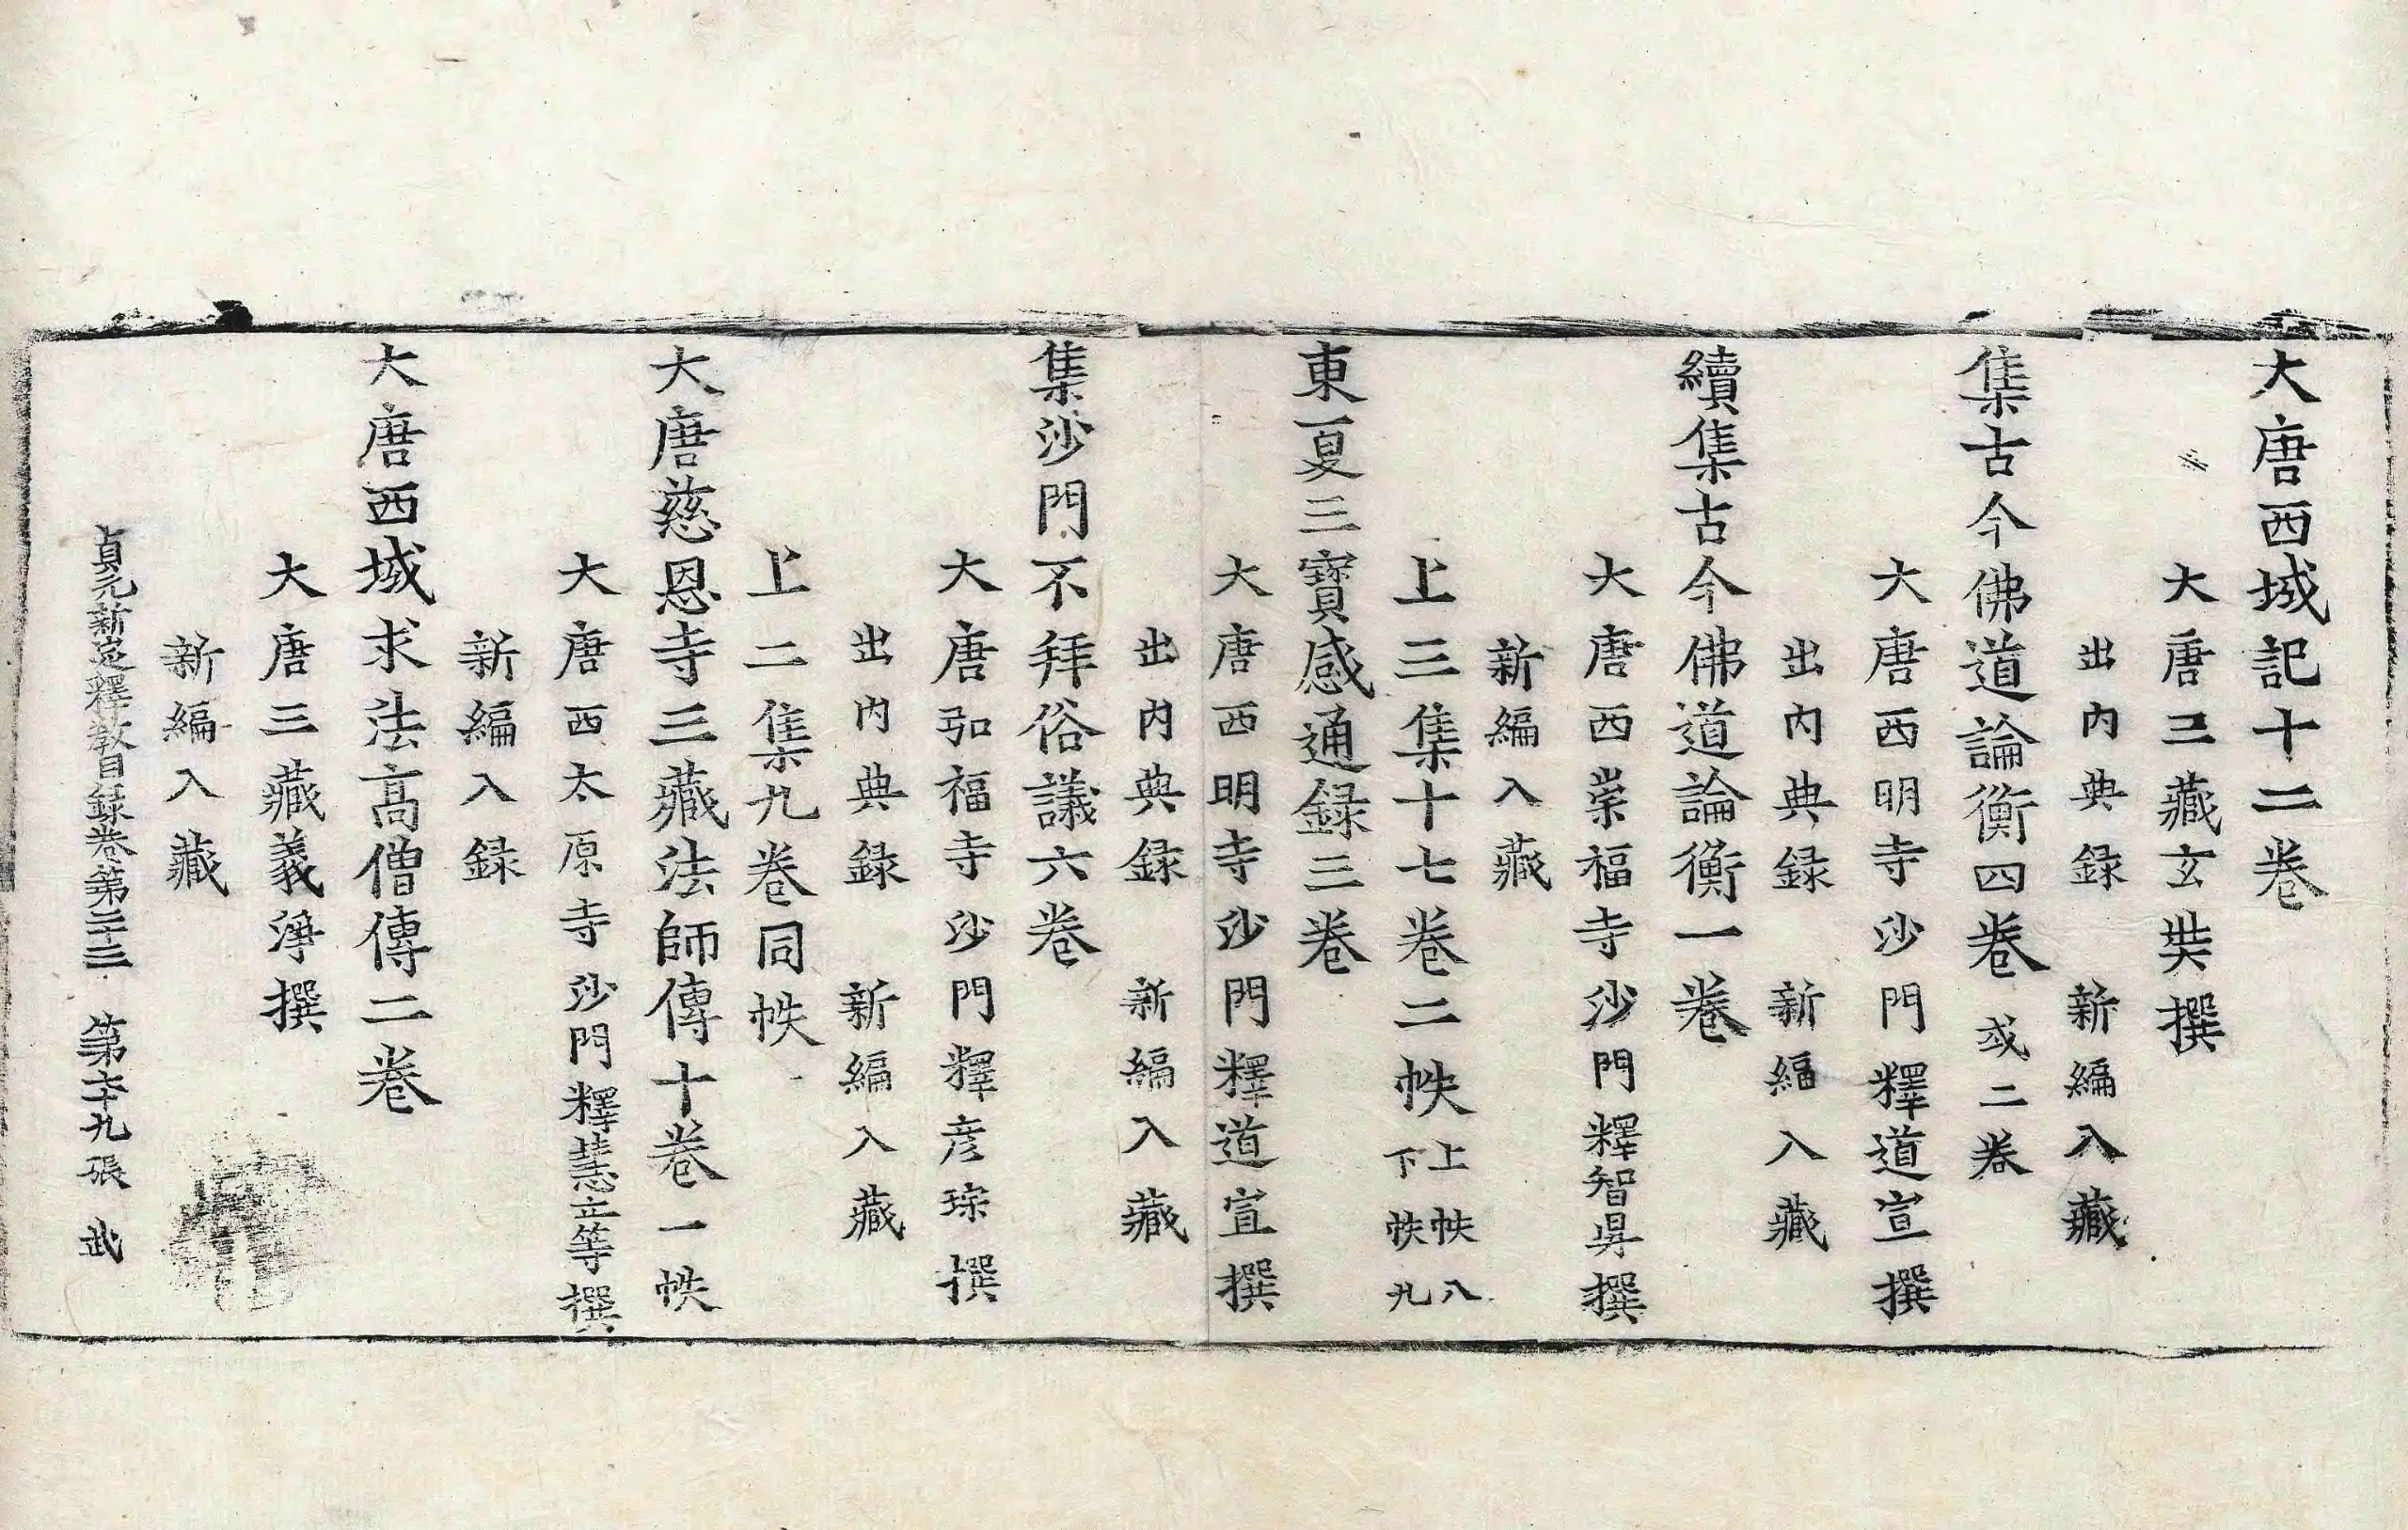 大唐西域記十二卷
大唐三藏玄奘撰
出内典録 新編入藏
集古今佛道論衡四卷 或二卷
大唐西明寺沙門釋道宣撰
出内典録 新編入藏
續集古今佛道論衡一卷
大唐西崇福寺沙門釋智昇撰
新編入藏
上三集十七卷二帙 上帙八
下帙九
東夏三寶感通録三卷
大唐西明寺沙門釋道宣撰
出内典録 新編入藏
集沙門不拜俗議六卷
大唐弘福寺沙門釋彦琮撰
出内典録 新編入藏
上二集九卷同帙
大唐慈恩寺三藏法師傳十卷一帙
大唐西太原寺沙門釋慧立等撰
新編入録
大唐西域求法高僧傳二卷
大唐三藏義淨撰
新編入藏
貞元新定釋教目録卷第二十三 第六十九張 武